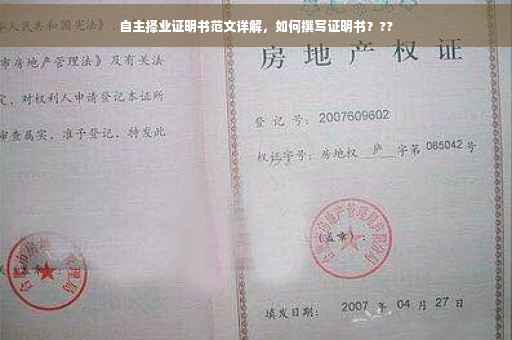 自主择业证明书范文详解，如何撰写证明书？??
人民共和国宪法》、
市房地产管理法》及有关法
定，对权利人申请登记本证所
审查属实，准予登记，特发此
房地产权证
登记号：2007609602
权证字号：房地权 庐 字第 065042 号
(盖章)：
填发日期：2007 年 04 月 27 日